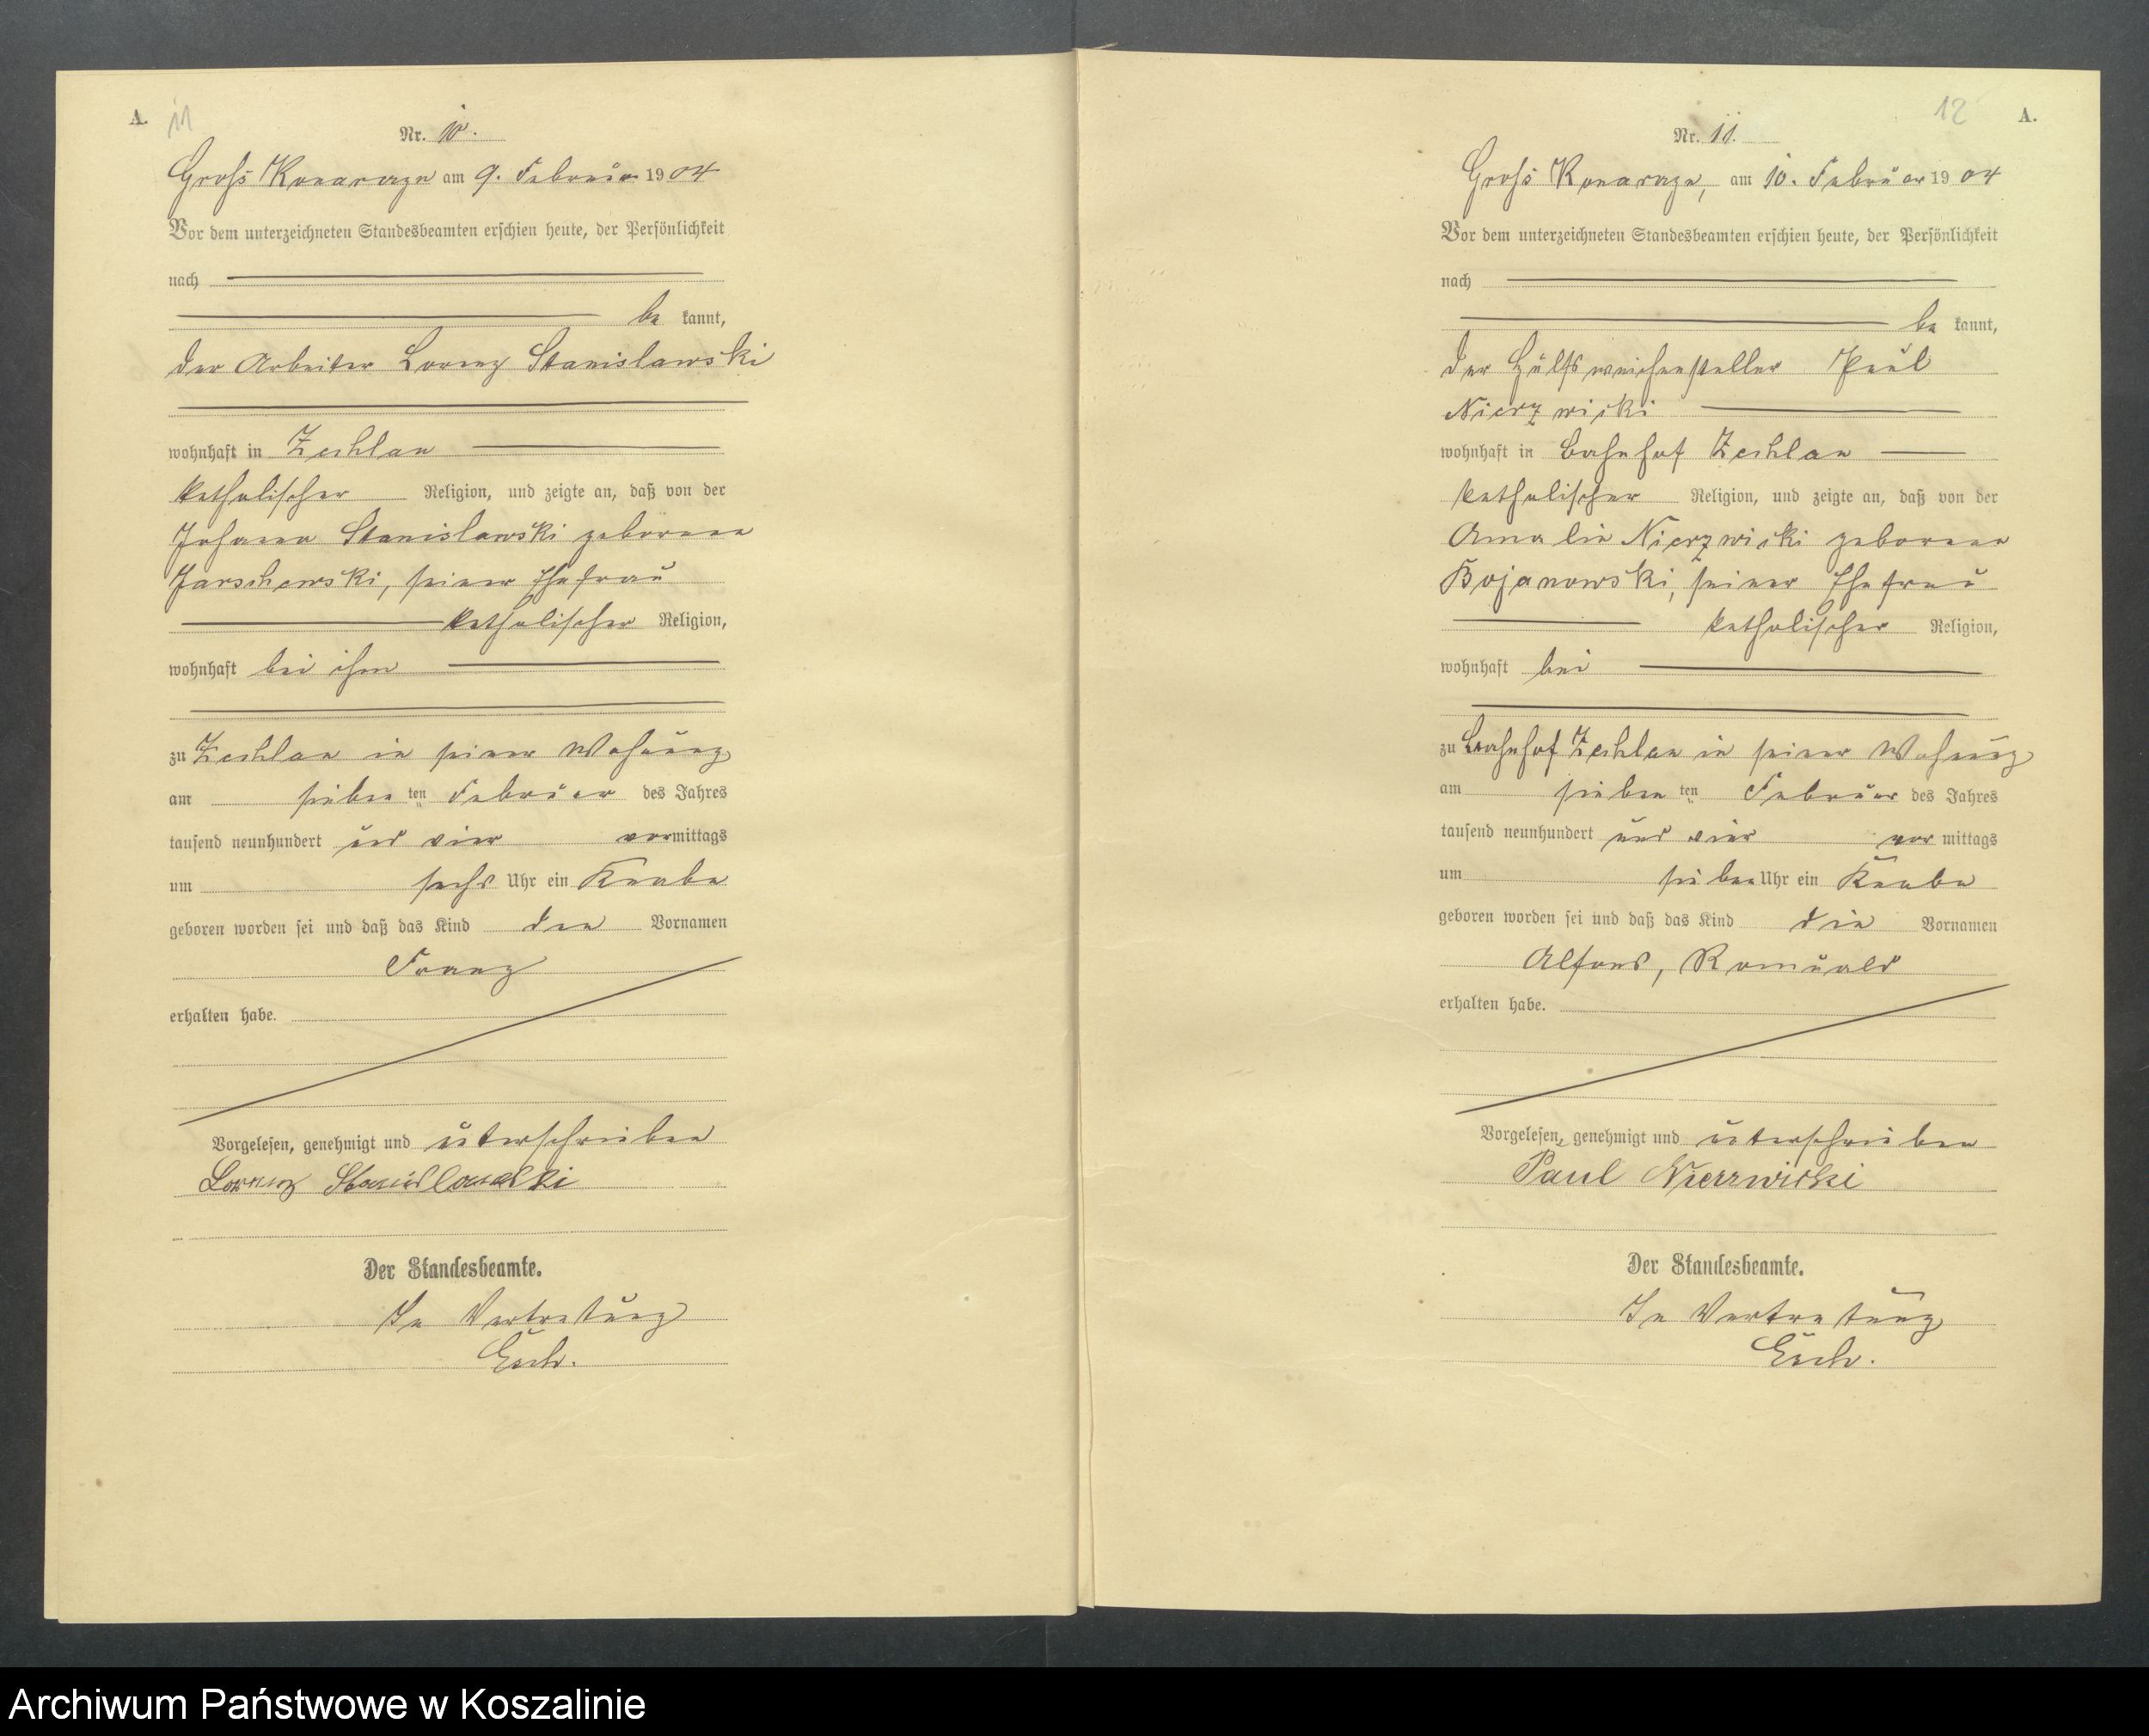 A.
11
Nr. 10.
Gross Konarczyn am 9. Februar 1904
Vor dem unterzeichneten Standesbeamten erschien heute, der Persönlichkeit
nach
be kannt,
der Arbeiter Lorenz Stanislawski
wohnhaft in Zechlau
katholischer Religion, und zeigte an, daß von der
Stanislawski geborenen
seiner Ehefrau
katholischer Religion,
wohnhaft bei ihm
zu Zechlau in seiner Wohnung
am sieben ten Februar des Jahres
tausend neunhundert und vier vormittags
um sechs Uhr ein Knabe
geboren worden sei und daß das Kind den Vornamen
Franz
erhalten habe.
Vorgelesen, genehmigt und unterschrieben
Lorenz Stanislawski
Der Standesbeamte.
In Vertretung
12
A.
Nr. 11.
Gross Konarczyn, am 10. Februar 1904
Vor dem unterzeichneten Standesbeamten erschien heute, der Persönlichkeit
nach
be kannt,
der Hülfsweichensteller Paul
Nierzwicki
wohnhaft in Bahnhof Zechlau
katholischer Religion, und zeigte an, daß von der
Amalie Nierzwicki geborenen
Bojanowski, seiner Ehefrau
katholischer Religion,
wohnhaft bei
zu Bahnhof Zechlau in seiner Wohnung
am sieben ten Februar des Jahres
tausend neunhundert und vier vor mittags
um sieben Uhr ein Knabe
geboren worden sei und daß das Kind die Vornamen
Alfons, Romuald
erhalten habe.
Vorgelesen, genehmigt und unterschrieben
Paul Nierzwicki
Der Standesbeamte.
In Vertretung
Archiwum Państwowe w Koszalinie